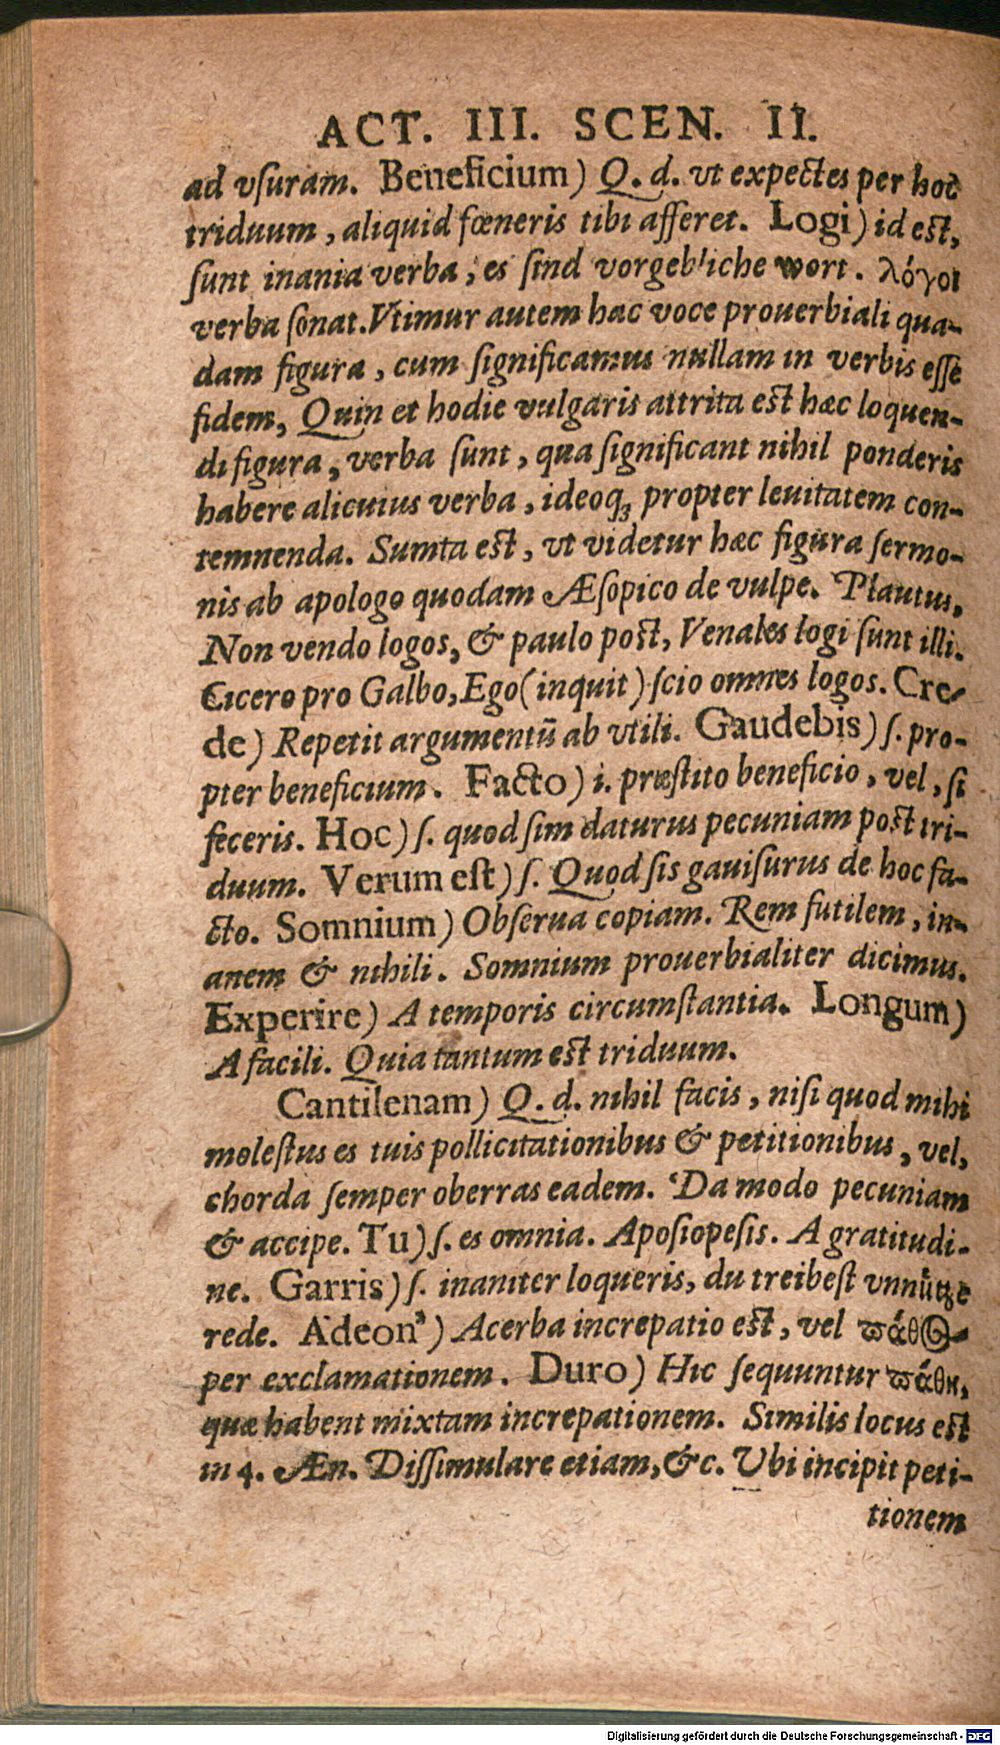 ACT. III. SCEN. II.
ad vſuram. Beneficium) Q. d. vt expectes per hoc
triduum, aliquid fœneris tibi afferet. Logi) id eſt,
ſunt inania verba, es ſind vorgebliche wort. λόγοι
verba ſonat. Vtimur autem hac voce prouerbiali qua-
dam figura, cum ſignificamus nullam in verbis eſſe
fidem, Quin et hodie vulgaris attrita eſt hæc loquen-
di figura, verba ſunt, qua ſignificant nihil ponderis
habere alicuius verba, ideoq; propter leuitatem con-
temnenda. Sumta eſt, vt videtur hæc figura ſermo-
nis ab apologo quodam Æſopico de vulpe. Plautus,
Non vendo logos, & paulo poſt, Venales logi ſunt illi.
Cicero pro Galbo, Ego (inquit) ſcio omnes logos. Cre-
de) Repetit argumentū ab vtili. Gaudebis) ſ. pro-
pter beneficium. Facto) i. præſtito beneficio, vel, ſi
feceris. Hoc) ſ. quod ſim daturus pecuniam poſt tri-
duum. Verum eſt) ſ. Quod ſis gauiſurus de hoc fa-
cto. Somnium) Obſerua copiam. Rem futilem, in-
anem & nihili. Somnium prouerbialiter dicimus.
Experire) A temporis circumſtantia. Longum)
A facili. Quia tantum eſt triduum.
Cantilenam) Q. d. nihil facis, niſi quod mihi
moleſtus es tuis pollicitationibus & petitionibus, vel,
chorda ſemper oberras eadem. Da modo pecuniam
& accipe. Tu) ſ. es omnia. Apoſiopeſis. A gratitudi-
ne. Garris) ſ. inaniter loqueris, du treibeſt vnnütze
rede. Adeon') Acerba increpatio eſt, vel ϖάθος
per exclamationem. Duro) Hic ſequuntur ϖάθη,
quæ habent mixtam increpationem. Similis locus eſt
in 4. Æn. Diſſimulare etiam, &c. Vbi incipit peti-
tionem
Digitalisierung gefördert durch die Deutsche Forschungsgemeinschaft - DFG